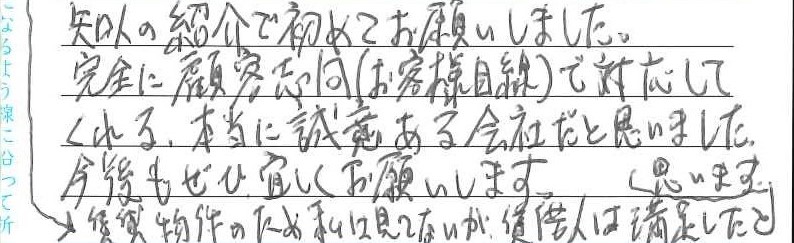 知人の紹介で初めてお願いしました。
完全に顧客志向(お客様目線)で対応して
くれる、本当に誠意ある会社だと思いました。
今後もぜひ宜しくお願いします。
→賃貸物件のため私は見てないが、賃借人は満足したと
思います。
なるよう線に沿って折